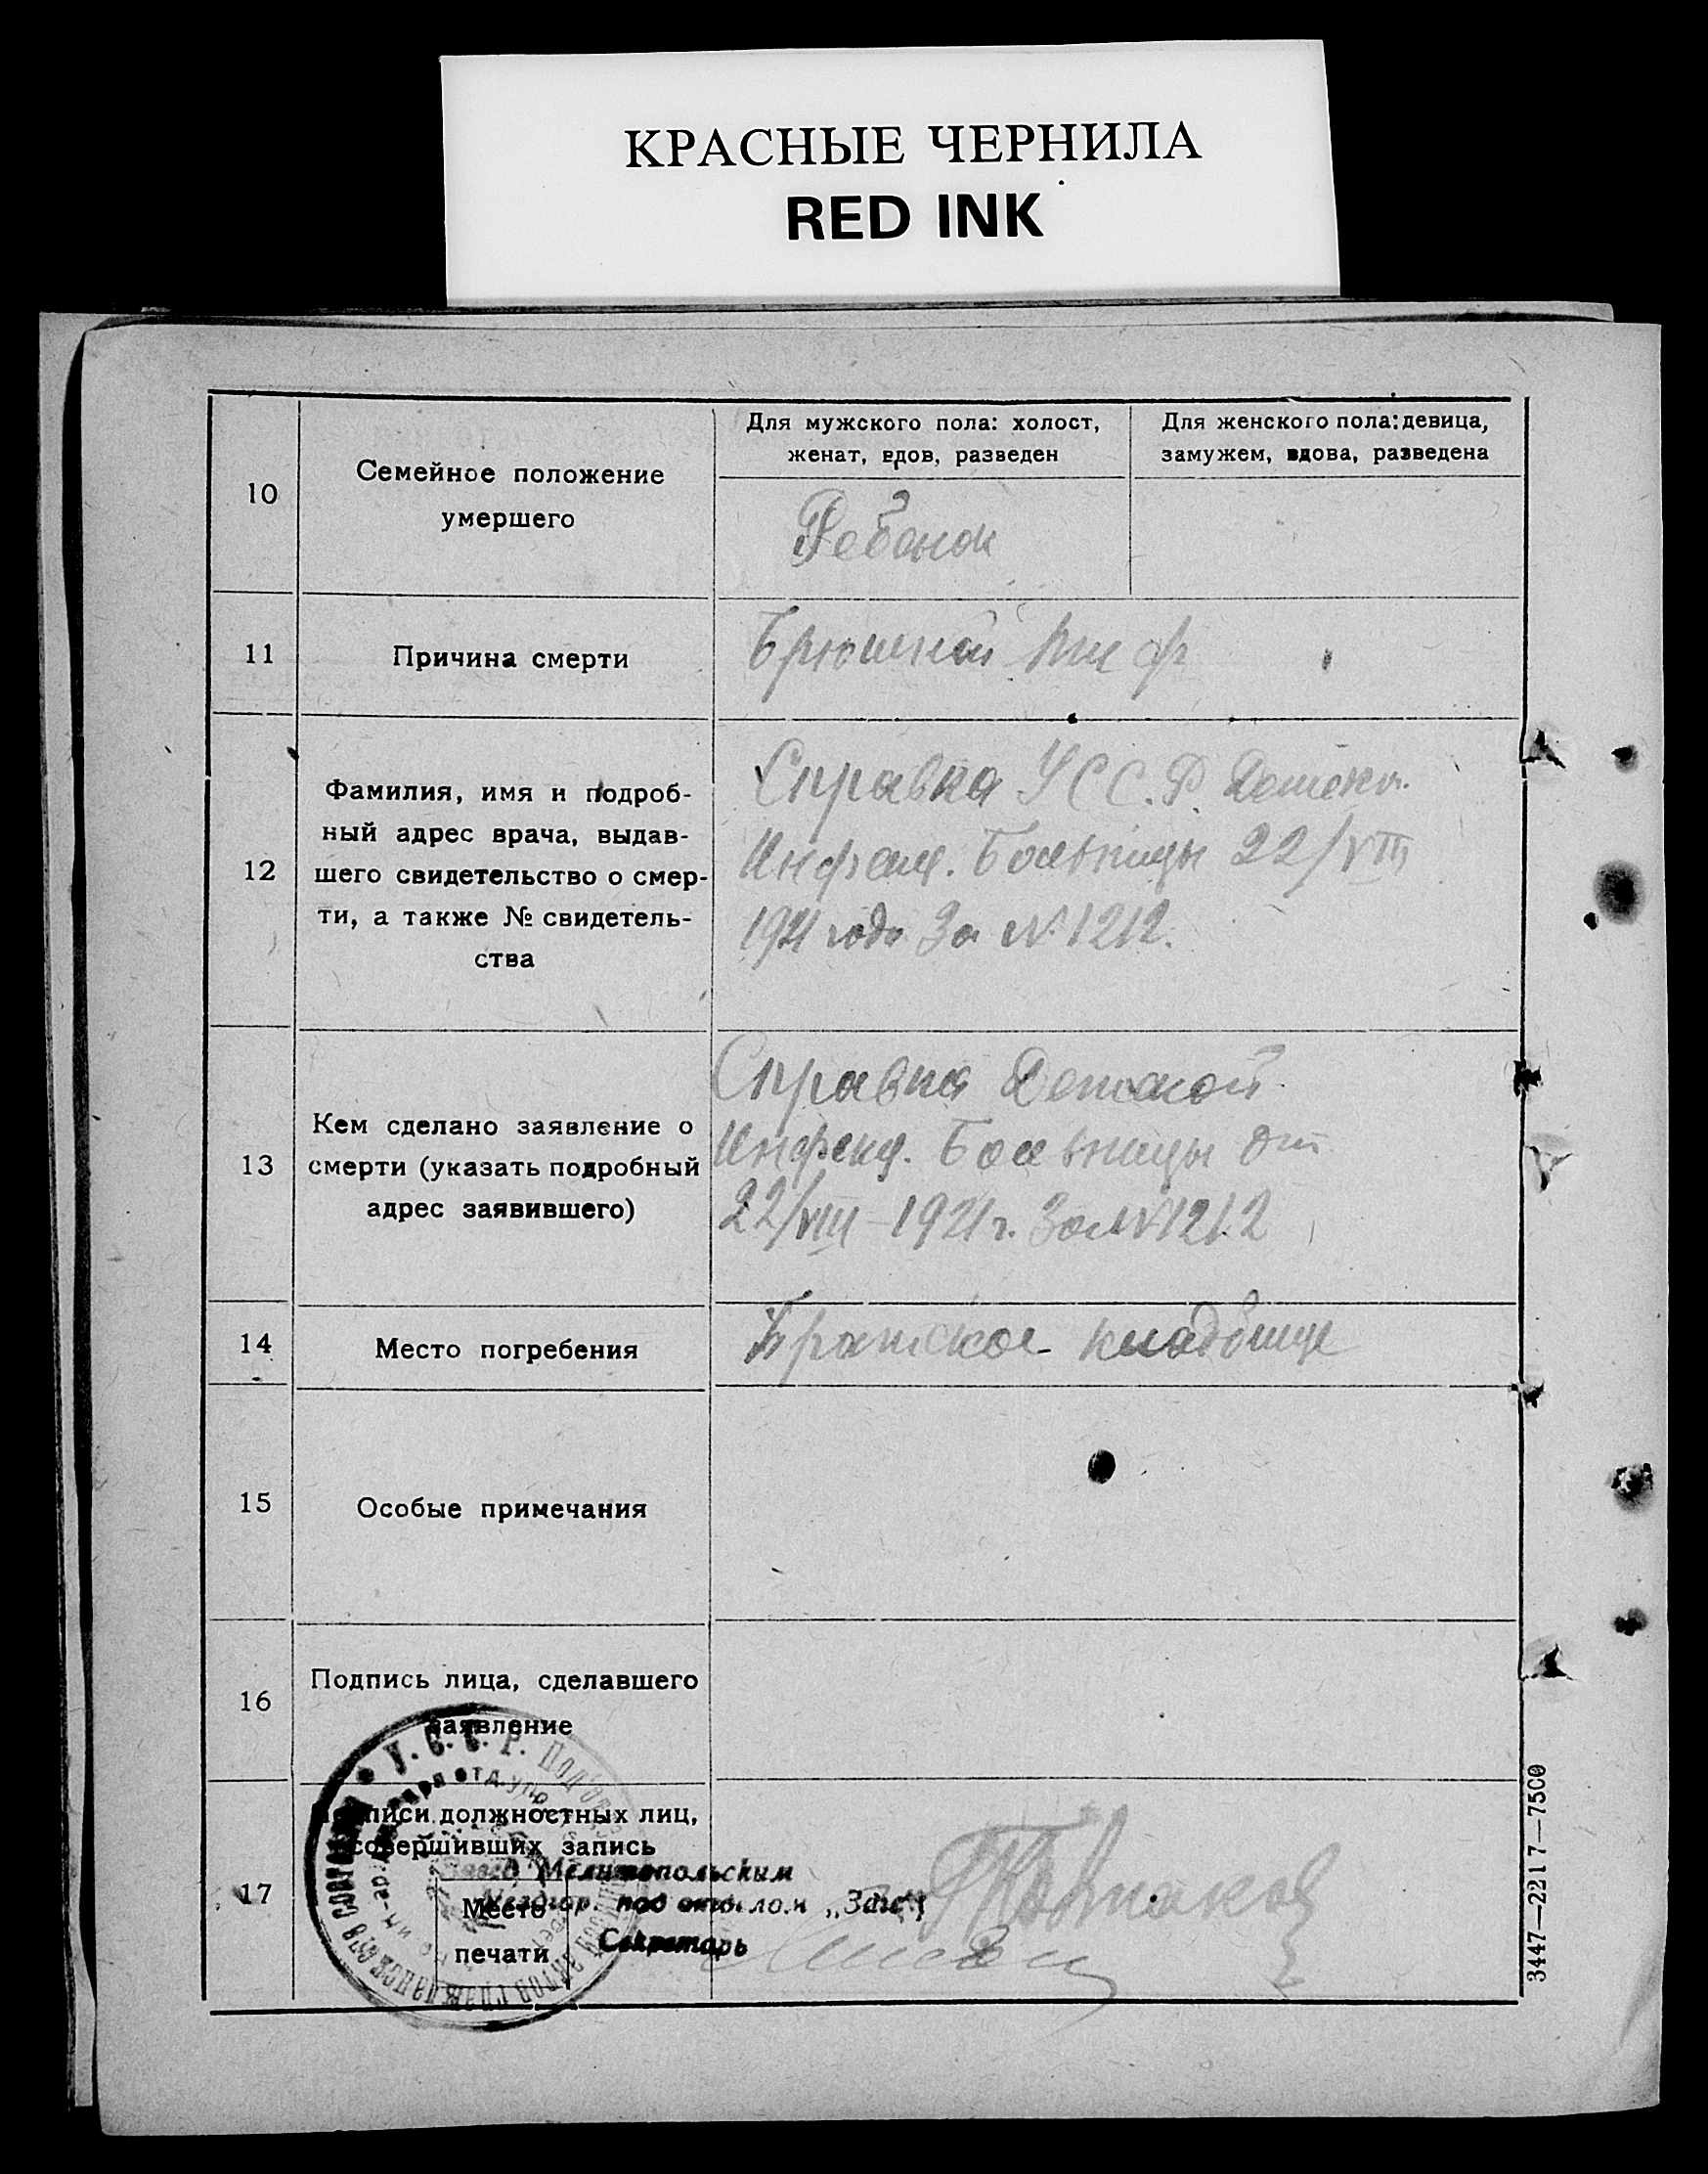 КРАСНЫЕ ЧЕРНИЛА
RED INK
10
Семейное положение
умершего
Для мужского пола: холост,
женат, вдов, разведен
Для женского пола: девица,
замужем, вдова, разведена
Ребенок
11
Причина смерти
Брюшной тиф
12
Фамилия, имя и подроб-
ный адрес врача, выдав-
шего свидетельство о смер-
ти, а также № свидетель-
ства
Справка УССР. Детской
Инфекц. Больницы 22/VIII
1921 года За № 1212.
13
Кем сделано заявление о
смерти (указать подробный
адрес заявившего)
Справка Детской
Инфекц. Больницы от
22/VIII - 1921 г. За № 1212
14
Место погребения
Братское кладбище
15
Особые примечания
16
Подпись лица, сделавшего
заявление
17
Подписи должностных лиц,
совершивших запись
Мелитопольским
под отделом „Загс“
Секретарь
Место
печати
У. С. С. Р. Под'отд.
3447—2217—7500